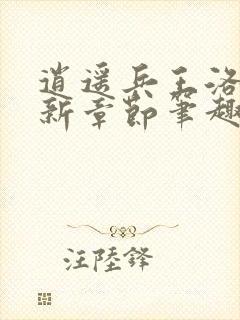 逍遥兵王洛
新章节笔趣
汪陸鋒